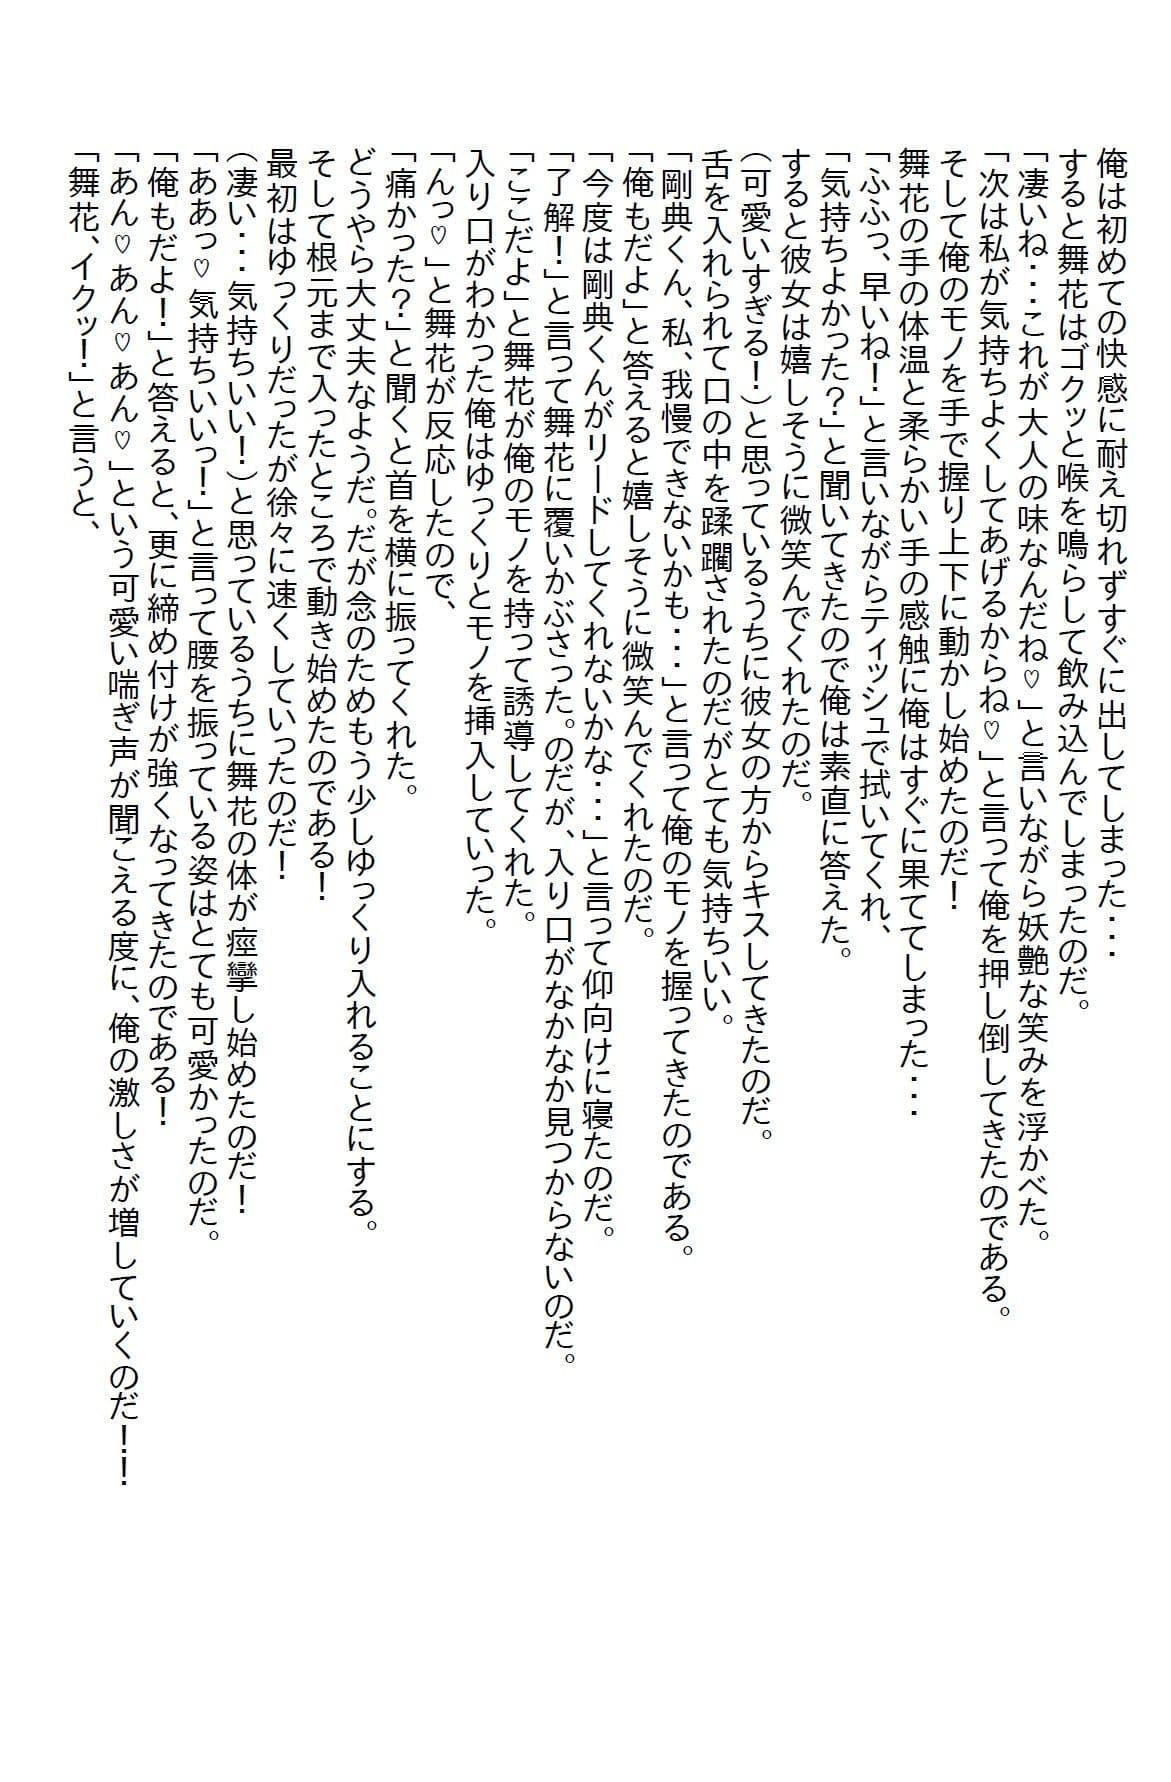 俺は初めての快感に耐え切れずすぐに出してしまった・・・
すると舞花はゴクッと喉を鳴らして飲み込んでしまったのだ。
「凄いね・・・これが大人の味なんだね♡」と言いながら妖艶な笑みを浮かべた。
「次は私が気持ちよくしてあげるからね♡」と言って俺を押し倒してきたのである。
そして俺のモノを手で握り上下に動かし始めたのだ！
舞花の手の体温と柔らかい手の感触に俺はすぐに果ててしまった・・・
「ふふっ、早いね！」と言いながらティッシュで拭いてくれ、
「気持ちよかった？」と聞いてきたので俺は素直に答えた。
すると彼女は嬉しそうに微笑んでくれたのだ。
（可愛いすぎる！）と思っているうちに彼女の方からキスしてきたのだ。
舌を入れられて口の中を蹂躙されたのだがとても気持ちいい。
「剛典くん、私、我慢できないかも・・・」と言って俺のモノを握ってきたのである。
「俺もだよ」と答えると嬉しそうに微笑んでくれたのだ。
「今度は剛典くんがリードしてくれないかな・・・」と言って仰向けに寝たのだ。
「了解！」と言って舞花に覆いかぶさった。のだが、入り口がなかなか見つからないのだ。
「ここだよ」と舞花が俺のモノを持って誘導してくれた。
入り口がわかった俺はゆっくりとモノを挿入していった。
「んっ♡」と舞花が反応したので、
「痛かった？」と聞くと首を横に振ってくれた。
どうやら大丈夫なようだ。だが念のためもう少しゆっくり入れることにする。
そして根元まで入ったところで動き始めたのである！
最初はゆっくりだったが徐々に速くしていったのだ！
（凄い・・・気持ちいい！）と思っているうちに舞花の体が痙攣し始めたのだ！
「ああっ♡気持ちいいっ！」と言って腰を振っている姿はとても可愛かったのだ。
「俺もだよ！」と答えると、更に締め付けが強くなってきたのである！
「あん♡あん♡あん♡」という可愛い喘ぎ声が聞こえる度に、俺の激しさが増していくのだ！！
「舞花、イクッ！」と言うと、